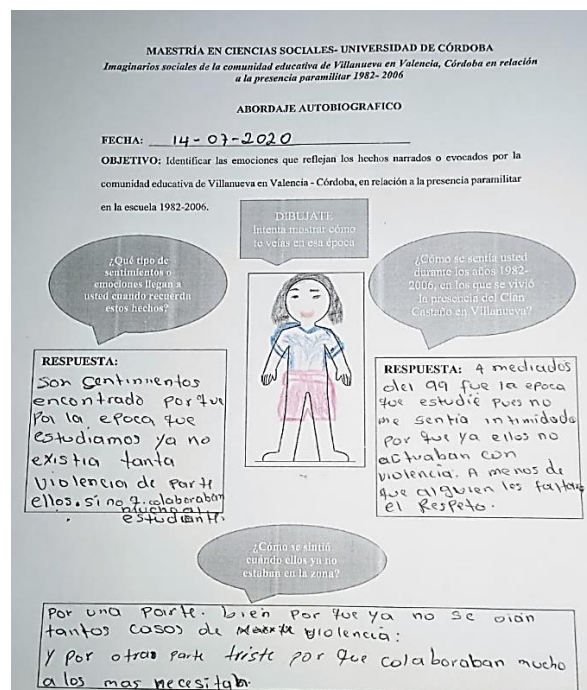 MAESTRÍA EN CIENCIAS SOCIALES- UNIVERSIDAD DE CÓRDOBA
Imaginarios sociales de la comunidad educativa de Villanueva en Valencia, Córdoba en relación
a la presencia paramilitar 1982- 2006
ABORDAJE AUTOBIOGRAFICO
FECHA: 14-07-2020
OBJETIVO: Identificar las emociones que reflejan los hechos narrados o evocados por la
comunidad educativa de Villanueva en Valencia - Córdoba, en relación a la presencia paramilitar
en la escuela 1982-2006.
DIBUJATE
Intenta mostrar cómo
te veías en esa época
¿Qué tipo de
sentimientos o
emociones llegan a
usted cuando recuerda
estos hechos?
RESPUESTA:
Son Sentinientos
encontrado porque
Por la epoca que
estudiamos ya no
existia tanta
violencia de parte
ellos. si no q. colaboraban
mucho al
estudiante.
¿Cómo se sentía usted
durante los años 1982-
2006, en los que se vivió
la presencia del Clan
Castaño en Villanueva?
RESPUESTA: A mediados
del 99 fue la epoca
que estudié pues no
me sentia intimidada
por que ya ellos no
actuaban con
violencia. A menos de
que alguien les faltara
el Respeto.
¿Cómo se sintió
cuando ellos ya no
estaban en la zona?
Por una parte. bien por que ya no se oian
tantos casos de violencia:
y por otras parte triste por que colaboraban mucho
a los mas necesitab.